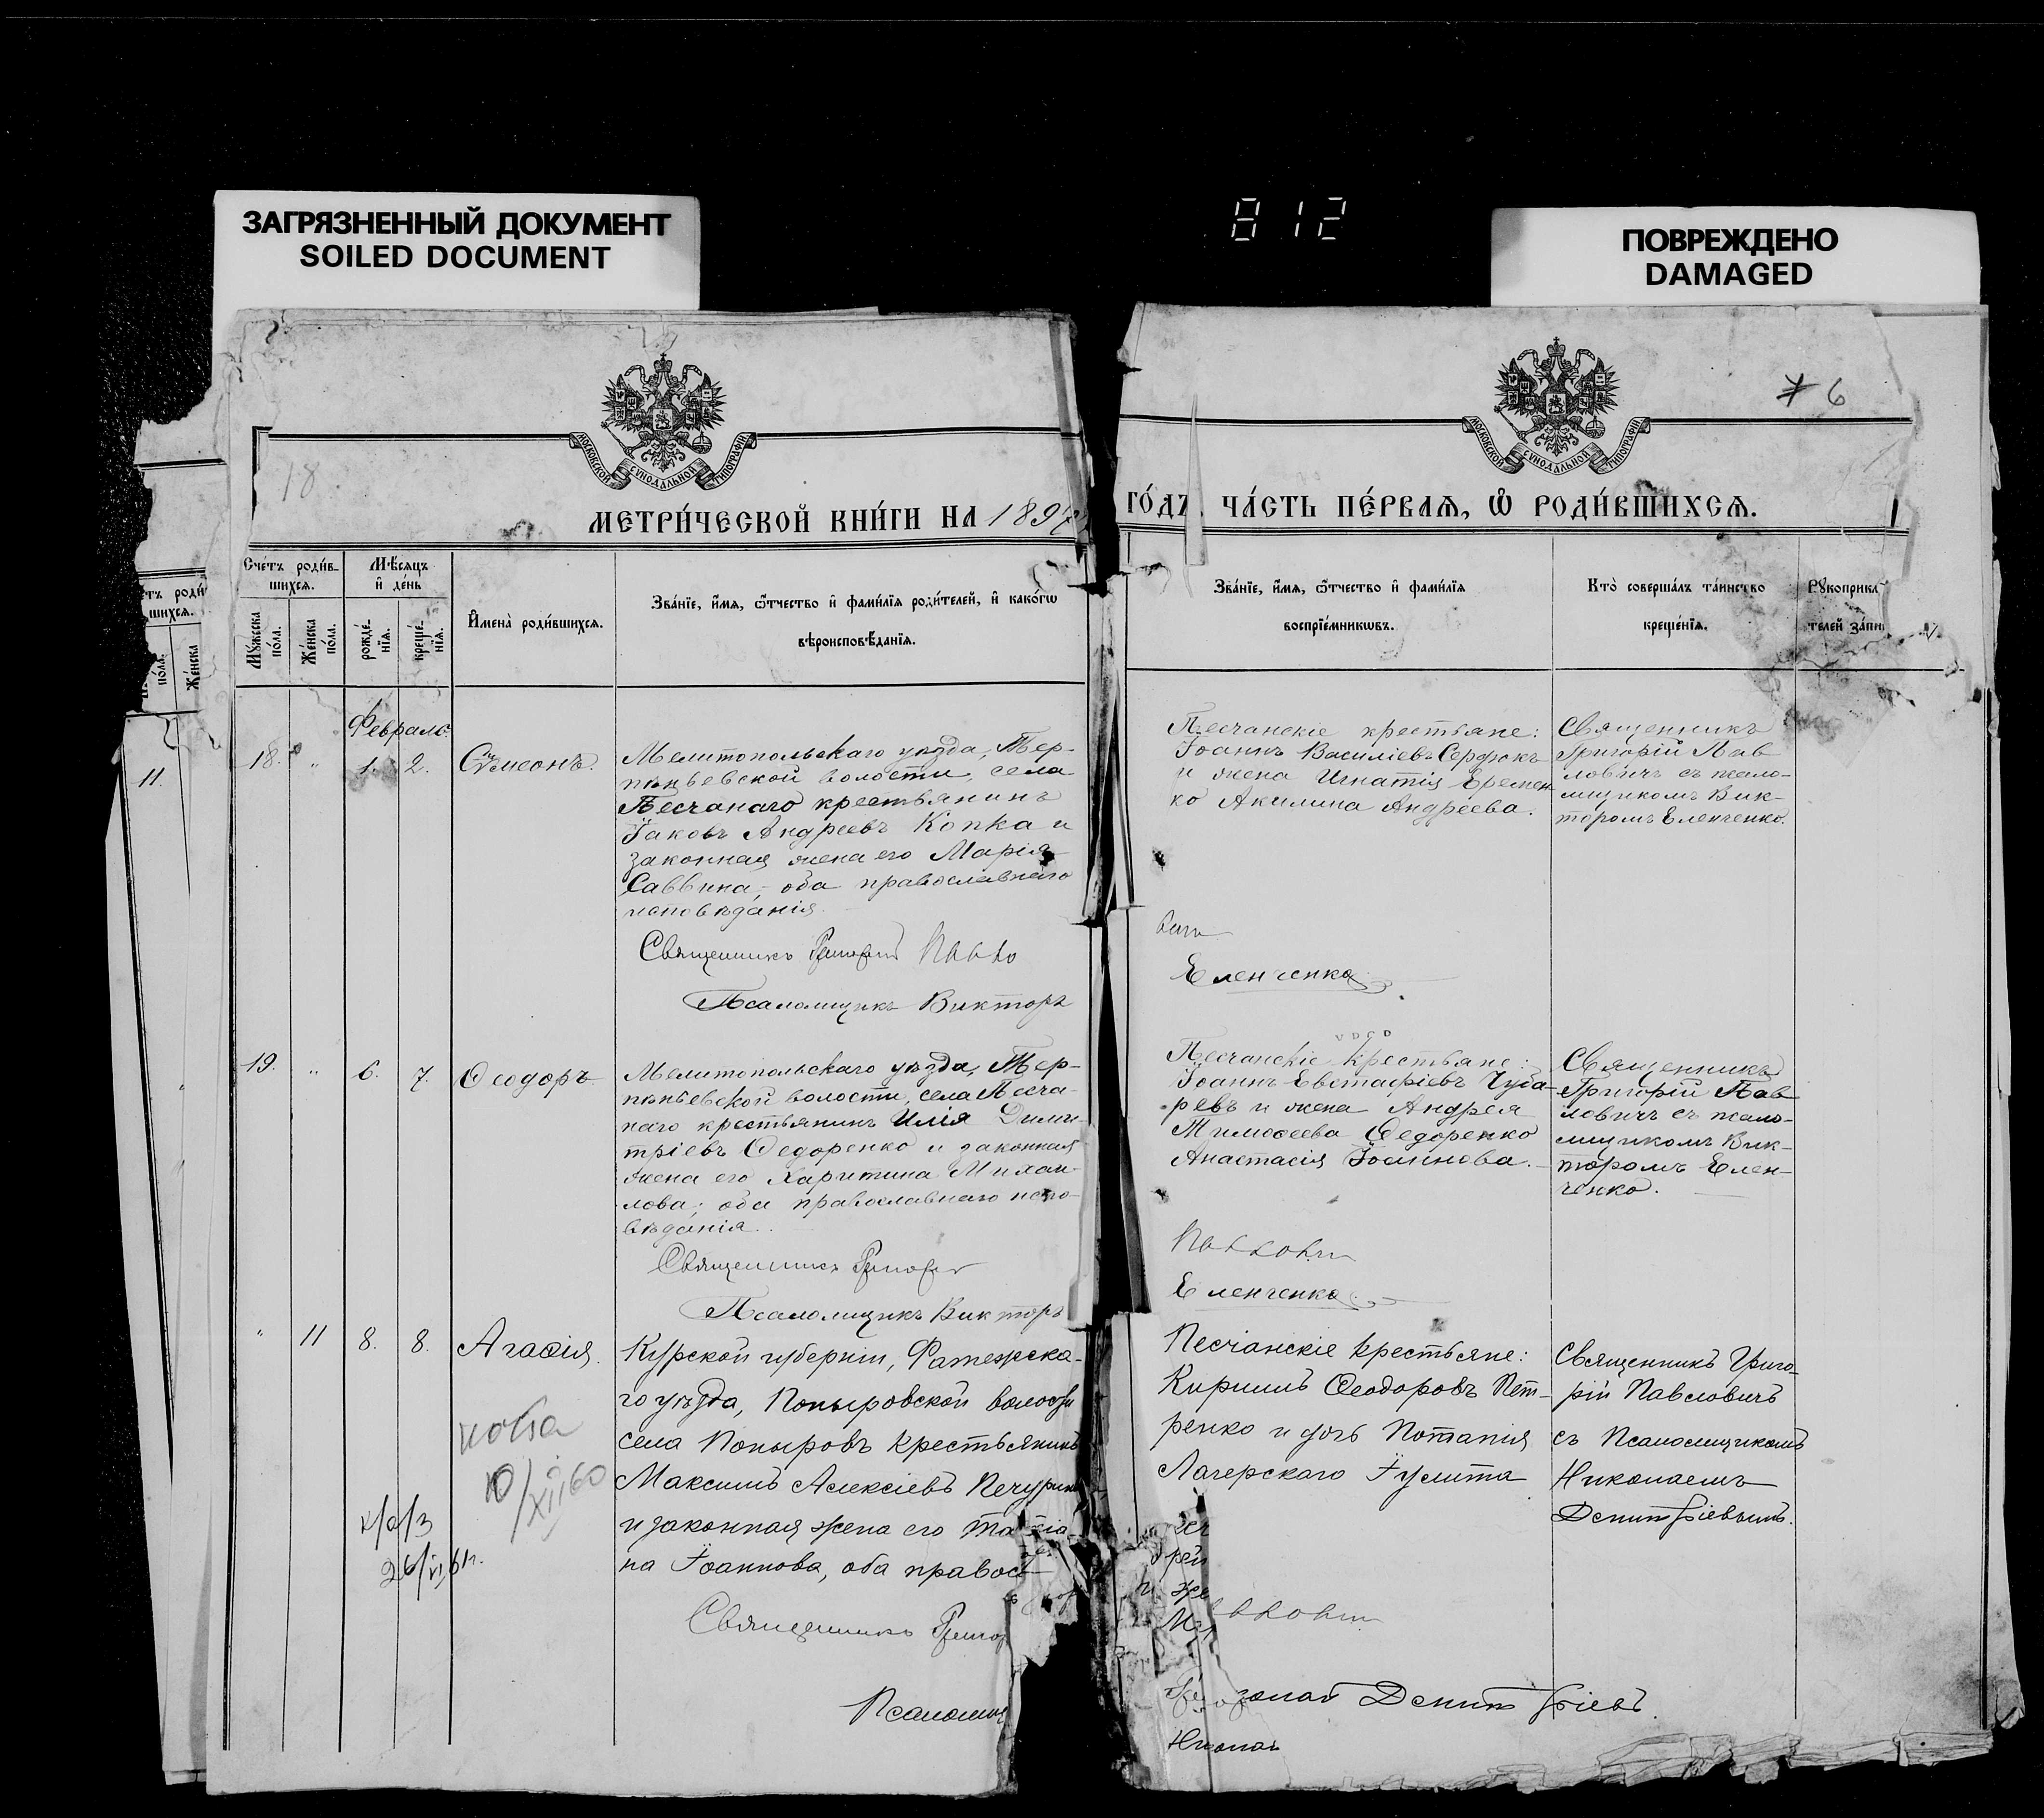 ЗАГРЯЗНЕННЫЙ ДОКУМЕНТ
SOILED DOCUMENT
812
ПОВРЕЖДЕНО
DAMAGED
6
18
МОСКОВСКОЙ СѴНОДАЛЬНОЙ ТИПОГРАФІИ
МОСКОВСКОЙ СѴНОДАЛЬНОЙ ТИПОГРАФІИ
МЕТРИ́ЧЕСКОЙ КНИ́ГИ НА 1897
ГО́ДЪ. ЧА́СТЬ ПЕ́РВАѦ, Ѡ҆ РОДИ́ВШИХСѦ.
Сче́тъ роди́в-
шихсѧ.
Мꙋ́жеска по́ла.
Же́нска по́ла.
Мѣ́сѧцъ
и҆ де́нь
рожде́-
нїѧ.
креще́-
нїѧ.
И҆мена̀ роди́вшихсѧ.
Зва́нїе, и҆́мѧ, ѻ҆́тчество и҆ фамѝлїѧ роди́телей, и҆ како́гѡ
вѣроисповѣ́данїѧ.
Зва́нїе, и҆́мѧ, ѻ҆́тчество и҆ фами́лїѧ
воспрїе́мникѡвъ.
Кто̀ соверша́лъ та́инство
креще́нїѧ.
Рꙋкоприкл
телей за́пи
11.
Февраль
18. " 1. 2. Сѵмеонъ.
Мелитопольскаго уѣзда, Тер-
пѣньевской волости, села
Песчанаго крестьянинъ
Іаковъ Андреевъ Копка и
законная жена его Марія
Саввина, – оба православнаго
исповѣданія
Священникъ Григорій Павло
Псаломщикъ Викторъ
Песчанскіе крестьяне:
Іоаннъ Васильевъ Сердюкъ
и жена Игнатія Еремен
ко Акилина Андреева.
вичъ
Еленченко
Священникъ
Григорій Пав
ловичъ съ псало-
мщикомъ Вик-
торомъ Еленченко.
19. " 6. 7. Ѳеодоръ
Мелитопольскаго уѣзда, Тер-
пѣньевской волости, села Песча-
наго крестьянинъ Илія Дими-
тріевъ Ѳедоренко и законная
жена его Харитина Михаи-
лова; оба православнаго испо-
вѣданія.
Священникъ Григорій
Псаломщикъ Викторъ
Песчанскіе крестьяне:
Іоаннъ Евстафіевъ Чуба-
ревъ и жена Андрея
Тимоѳеева Ѳедоренко
Анастасія Іоаннова.
Павловичъ
Еленченко
Священникъ
Григорій Пав
ловичъ съ псало-
мщикомъ Вик-
торомъ Елен-
ченко.
" 11 8. 8. Агаѳія.
Курской губерніи, Фатежска-
го уѣзда, Поныровской волости
села Поныровъ крестьянинъ
Максимъ Алексіевъ Печурин
и законная жена его Татіа-
на Іоаннова, оба правос
Священникъ Григор
Псаломщ
копия
10/XII 60
к/а/з
26/VI 61г.
Песчанскіе крестьяне:
Кириллъ Ѳеодоровъ Пет-
ренко и дочь Потапія
Лагерскаго Іулита
Николай Демитріевъ.
Никола
Священникъ Григо-
рій Павловичъ
съ Псаломщикомъ
Николаемъ
Демитріевымъ.